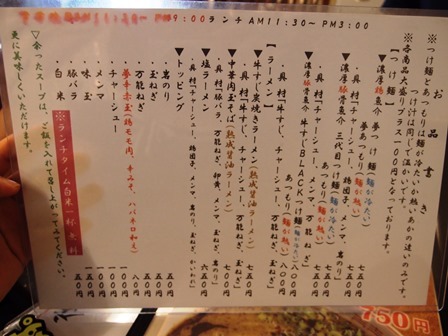 9:00 ランチ AM11:30~ PM3:00
お品書き
※つけ麺とあつもりは麺が冷たいか熱いあるかの違いのみです。
つけ汁は同じで温かいです。
※各商品大盛りプラス100円となっております。
【つけ麺】
▼濃厚鶏魚介 夢つけ麺(麺が冷たい) 七五〇
あつもり(麺が熱い) 七五〇
・具材「チャーシュー、鶏団子、メンマ、岩のり」
▼濃厚豚骨魚介 三代目つけ麺(麺が冷たい) 七五〇
あつもり(麺が熱い) 七五〇
・具材「チャーシュー、メンマ、万能ねぎ、岩のり」
▼濃厚豚骨魚介 牛すじBLACKつけ麺(麺が冷たい) 八〇〇
あつもり(麺が熱い) 八〇〇
・具材「牛すじ、チャーシュー、メンマ、万能ねぎ
【ラーメン】
▼牛すじ炭焼きラーメン(熟成醤油ラーメン) 七五〇
・具材「牛すじ、チャーシュー、万能ねぎ、玉ねぎ」
▼中華肉玉そば(熟成醤油ラーメン) 七五〇
・具材「豚バラ、万能ねぎ、卵黄、メンマ、玉ねぎ」
▼塩ラーメン 六五〇
・具材「チャーシュー、メンマ、岩のり、玉ねぎ、かいわれ」
▼トッピング
・岩のり 五〇
・玉ねぎ 五〇
・万能ねぎ 五〇
・夢辛赤玉(鶏モモ肉、チキソ、ハバネロ和え) 八〇
・チャーシュー
・メンマ 一〇〇
・味玉 一〇〇
・豚バラ
・白米
※ランチタイム白米一杯無料
▽余ったスープは、ご飯を入れて召し上がってみてください。
更に美味しくいただけます。
750円